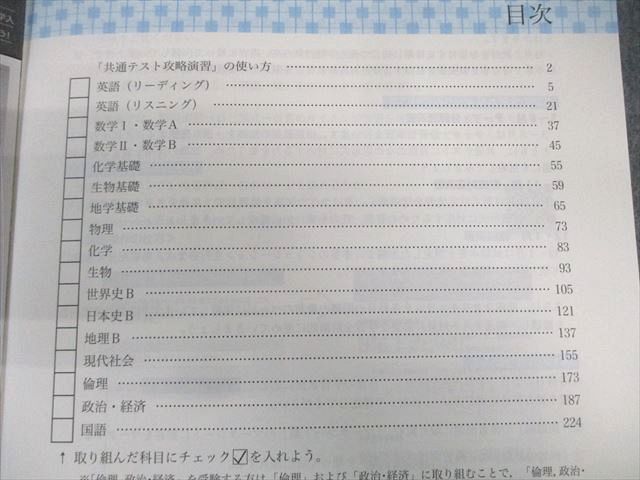 目次
「共通テスト攻略演習」の使い方 …… 2
英語（リーディング） …… 5
英語（リスニング） …… 21
数学Ⅰ・数学A …… 37
数学Ⅱ・数学B …… 45
化学基礎 …… 55
生物基礎 …… 59
地学基礎 …… 65
物理 …… 73
化学 …… 83
生物 …… 93
世界史B …… 105
日本史B …… 121
地理B …… 137
現代社会 …… 155
倫理 …… 173
政治・経済 …… 187
国語 …… 224
↑ 取り組んだ科目にチェック☑を入れよう。
※「倫理, 政治・経済」を受験する方は「倫理」および「政治・経済」に取り組むことで，「倫理, 政治・